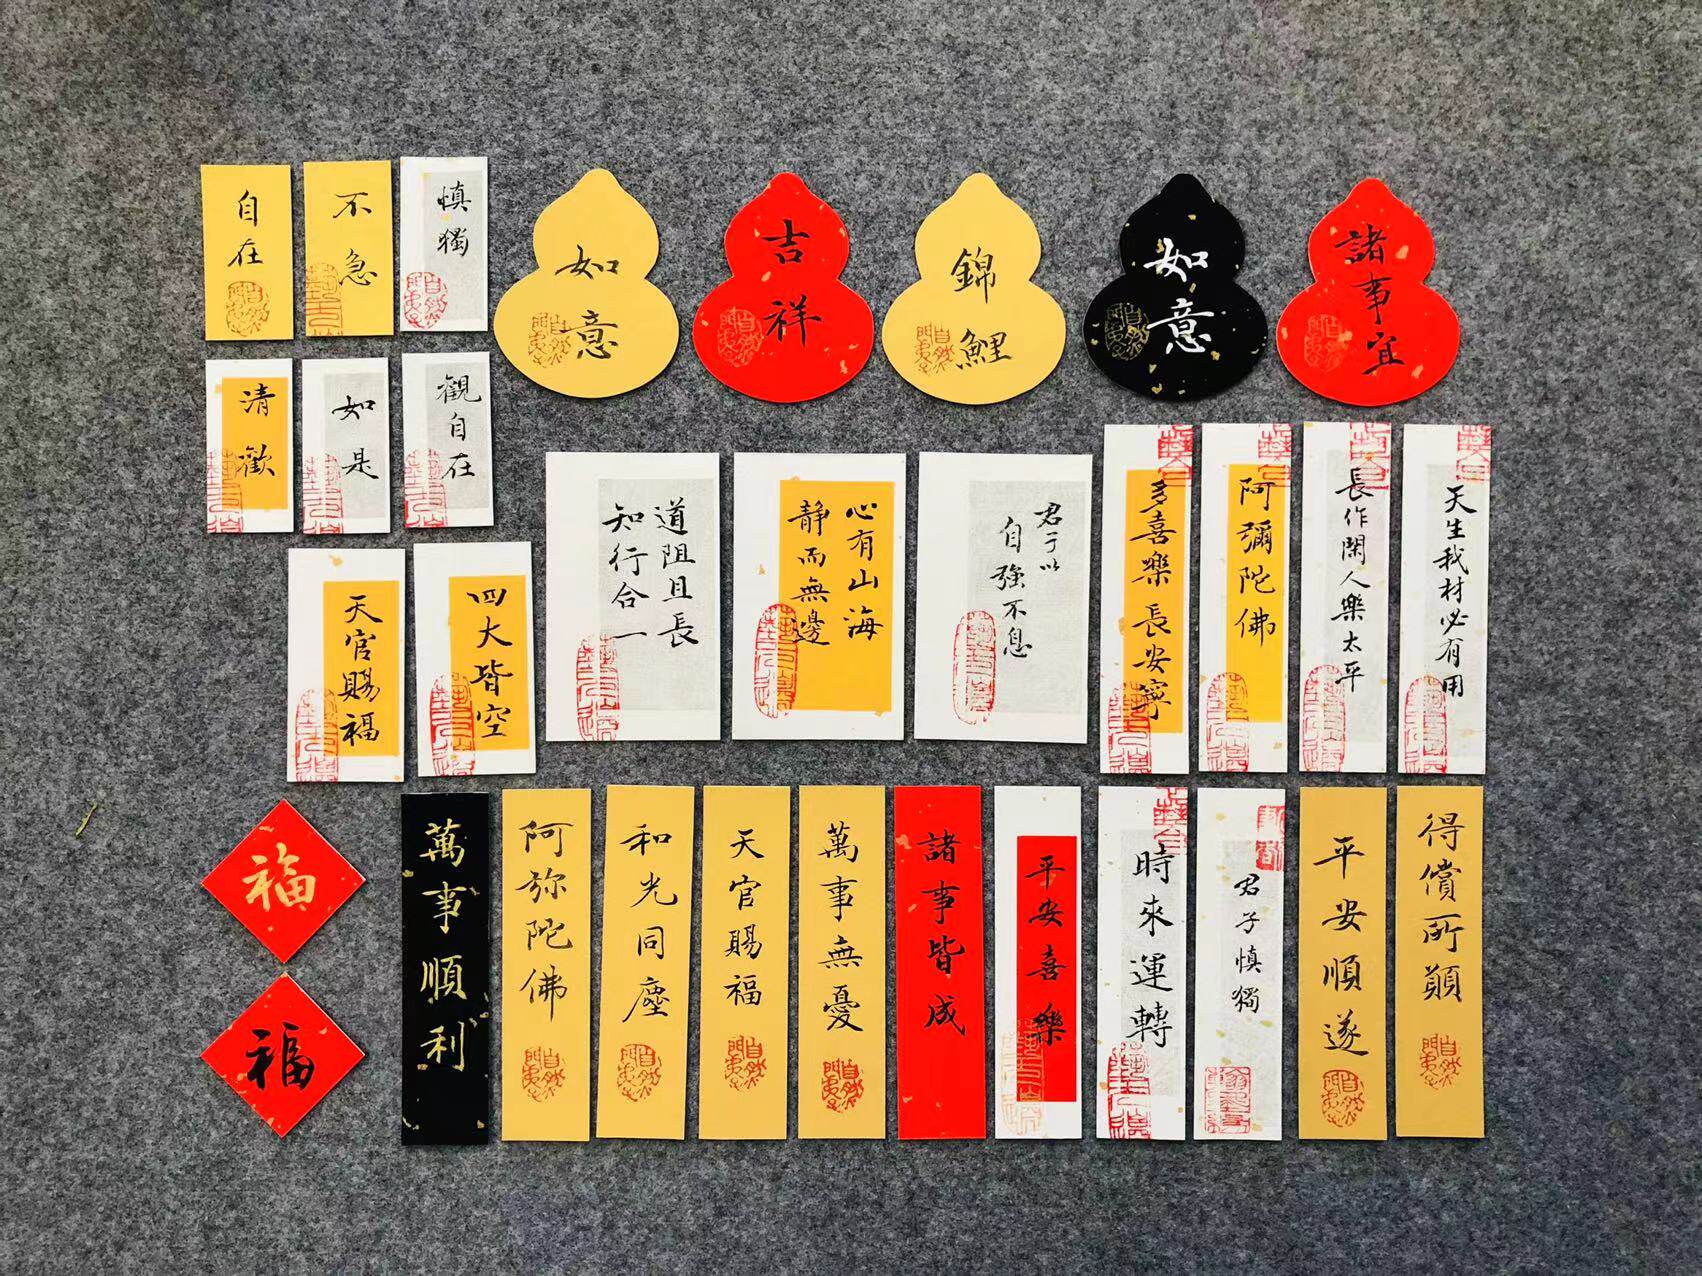 自在
不急
慎獨
如意
吉祥
錦鯉
如意
諸事宜
清歡
如是
觀自在
道阻且長
知行合一
心有山海
靜而無邊
君子以
自強不息
多喜樂長安寧
阿彌陀佛
長作閑人樂太平
天生我材必有用
天官賜福
四大皆空
福
福
萬事順利
阿弥陀佛
和光同塵
天官賜福
萬事無憂
諸事皆成
平安喜樂
時來運轉
君子慎獨
平安順遂
得償所願